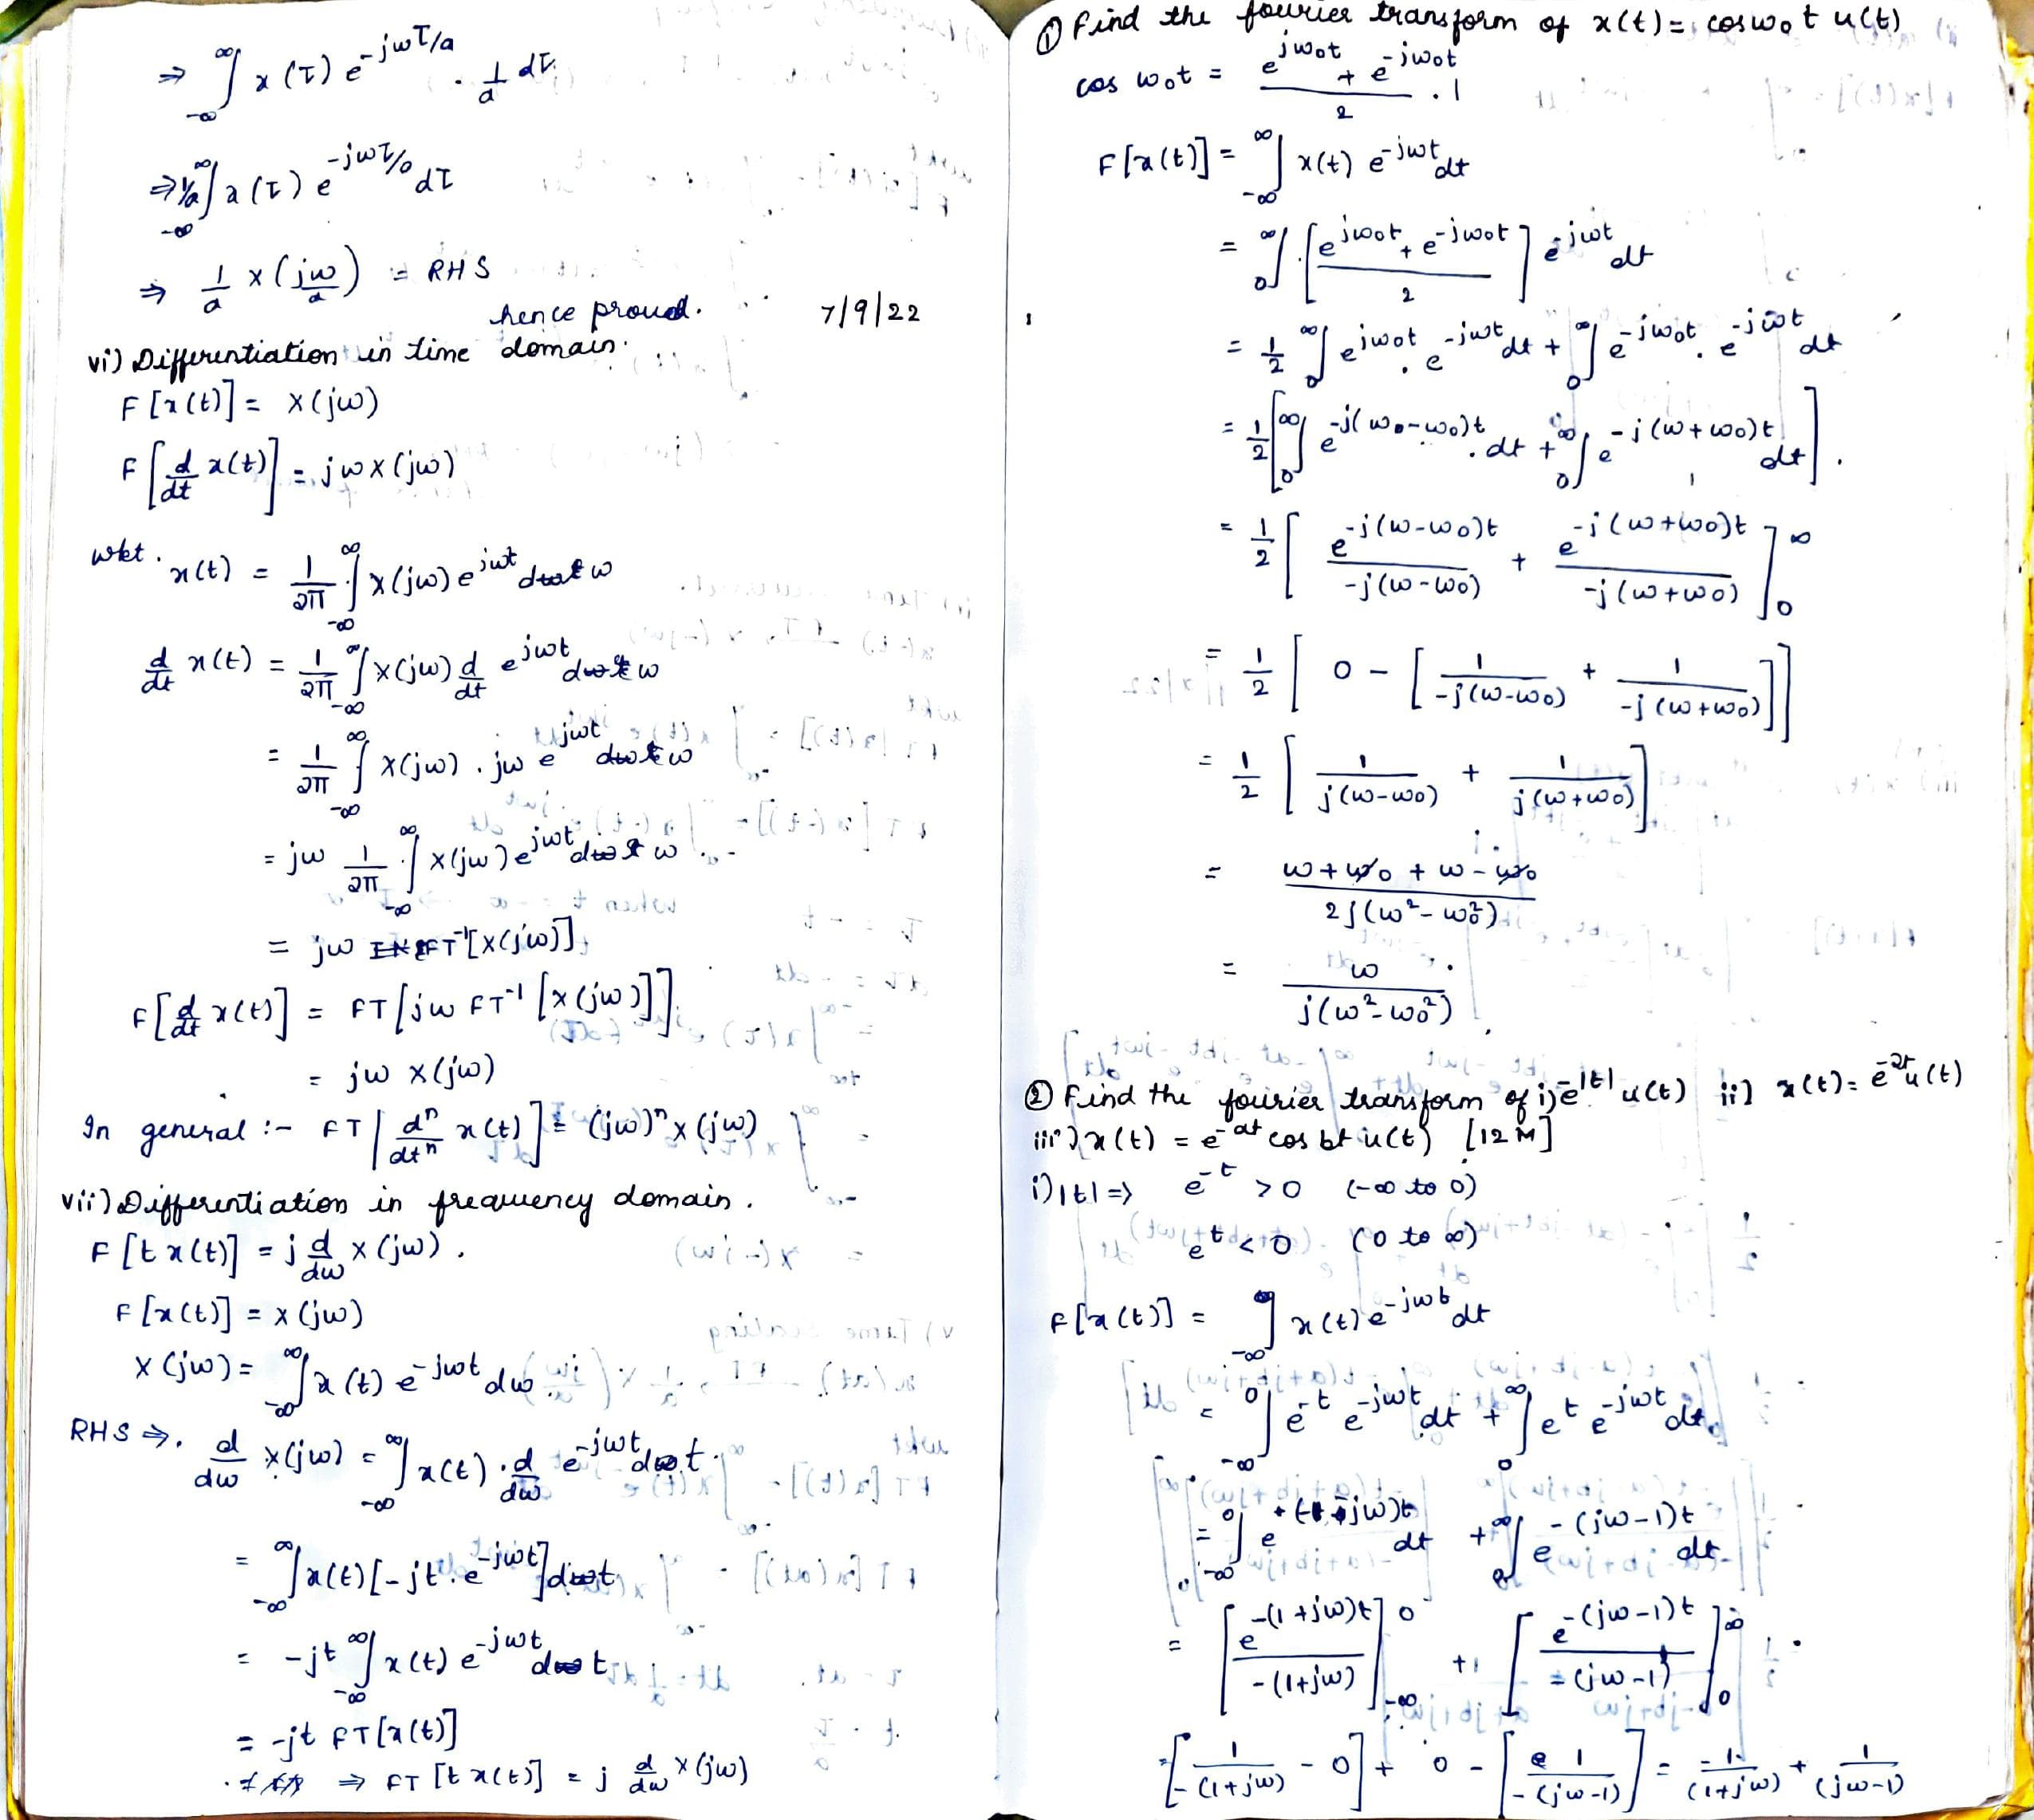 ⇒ ∫_{-∞}^{∞} x(τ) e^{-jωτ/a} . 1/a dτ.
⇒ 1/a ∫_{-∞}^{∞} x(τ) e^{-jωτ/a} dτ
⇒ 1/a X(jω/a) = RHS
hence proved. 7/9/22
vi) Differentiation in time domain.
F[x(t)] = X(jω)
F[d/dt x(t)] = jωX(jω)
wkt. x(t) = 1/2π ∫_{-∞}^{∞} X(jω) e^{jωt} dω
d/dt x(t) = 1/2π ∫_{-∞}^{∞} X(jω) d/dt e^{jωt} dω
= 1/2π ∫_{-∞}^{∞} X(jω) . jω e^{jωt} dω
= jω 1/2π ∫_{-∞}^{∞} X(jω) e^{jωt} dω
= jω FT^{-1}[X(jω)]
F[d/dt x(t)] = FT[jω FT^{-1}[X(jω)]]
= jω X(jω)
In general :- FT[d^n/dt^n x(t)] = (jω)^n X(jω)
vii) Differentiation in frequency domain.
F[t x(t)] = j d/dω X(jω).
F[x(t)] = X(jω)
X(jω) = ∫_{-∞}^{∞} x(t) e^{-jωt} dω
RHS ⇒. d/dω X(jω) = ∫_{-∞}^{∞} x(t) . d/dω e^{-jωt} dt.
= ∫_{-∞}^{∞} x(t) [-jt . e^{-jωt}] dt
= -jt ∫_{-∞}^{∞} x(t) e^{-jωt} dt
= -jt FT[x(t)]
⇒ FT[t x(t)] = j d/dω X(jω)
① Find the fourier transform of x(t) = cosω₀t u(t)
cos ω₀t = (e^{jω₀t} + e^{-jω₀t})/2 . 1
F[x(t)] = ∫_{-∞}^{∞} x(t) e^{-jωt} dt
= ∫_{0}^{∞} [(e^{jω₀t} + e^{-jω₀t})/2] e^{-jωt} dt
= 1/2 ∫_{0}^{∞} e^{jω₀t} . e^{-jωt} dt + ∫_{0}^{∞} e^{-jω₀t} . e^{-jωt} dt
= 1/2 [∫_{0}^{∞} e^{-j(ω₀-ω₀)t} . dt + ∫_{0}^{∞} e^{-j(ω+ω₀)t} dt].
= 1/2 [e^{-j(ω-ω₀)t}/-j(ω-ω₀) + e^{-j(ω+ω₀)t}/-j(ω+ω₀)]_{0}^{∞}
= 1/2 [0 - [1/-j(ω-ω₀) + 1/-j(ω+ω₀)]]
= 1/2 [1/j(ω-ω₀) + 1/j(ω+ω₀)]
= (ω + ω₀ + ω - ω₀)/2j(ω²-ω₀²)
= ω/j(ω²-ω₀²)
② Find the fourier transform of i) e^{-|t|} u(t) ii) x(t) = e^{-2t} u(t)
iii) x(t) = e^{-at} cos bt u(t) [12M]
i) |t| ⇒ e^{-t} > 0 (-∞ to 0)
e^{t} < 0 (0 to ∞)
F[x(t)] = ∫_{-∞}^{∞} x(t) e^{-jωt} dt
= ∫_{-∞}^{0} e^{-t} e^{-jωt} dt + ∫_{0}^{∞} e^{t} e^{-jωt} dt.
= ∫_{-∞}^{0} e jω)t dt + ∫_{0}^{∞} e^{-(jω-1)t} dt
= [e^{-(1+jω)t}/-(1+jω)]_{-∞}^{0} + [e^{-(jω-1)t}/-(jω-1)]_{0}^{∞}
= [1/-(1+jω) - 0] + 0 - [1/-(jω-1)] = -1/(1+jω) + 1/(jω-1)